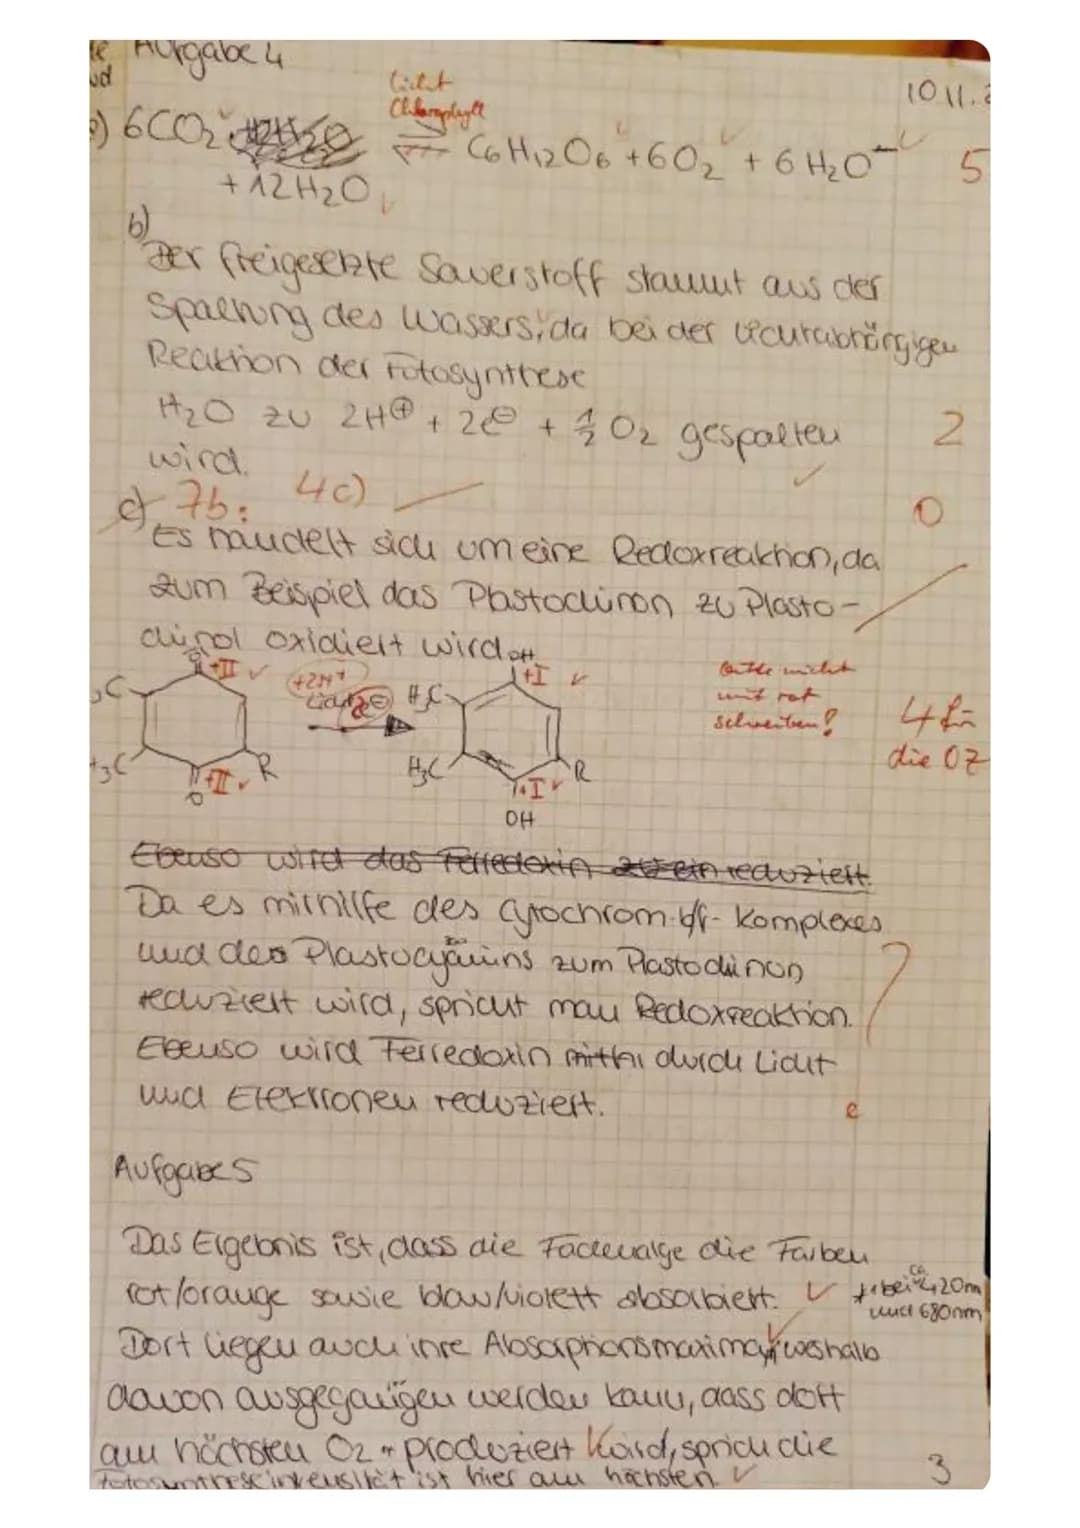 Aufgabe 4
10.11.
Licht
Chlorophyll
6CO2 ⇌ C6H12O6 + 6O2 + 6H2O 5
+ 12H2O
b)
Der freigesetzte Sauerstoff stammt aus der
Spaltung des Wassers, da bei der lichtabhängigen
Reaktion der Fotosynthese
H2O zu 2H⊕ + 2e⊖ + ½ O2 gespalten 2
wird.
c) 7b: 4c) 0
Es handelt sich um eine Redoxreaktion, da
zum Beispiel das Plastochinon zu Plasto-
chinol oxidiert wird.
O +II +2H+ OH +I bitte nicht
H3C Licht 2e⊖ H3C mit rot
schreiben! 4 für
H3C +II R H3C +I R die OZ
O OH
Ebenso wird das Ferredoxin zu ein reduziert.
Da es mithilfe des Cytochrom-b/f-Komplexes
und des Plastocyanins zum Plastochinon ?
reduziert wird, spricht man Redoxreaktion.
Ebenso wird Ferredoxin durch Licht
und Elektronen reduziert.
Aufgabe 5
Das Ergebnis ist, dass die Fadenalge die Farben
rot/orange sowie blau/violett absorbiert. * bei ca. 420nm
und 680nm
Dort liegen auch ihre Absorptionsmaxima, weshalb
davon ausgegangen werden kann, dass dort
am höchsten O2 produziert wird, sprich die
Fotosyntheseintensität ist hier am höchsten. 3